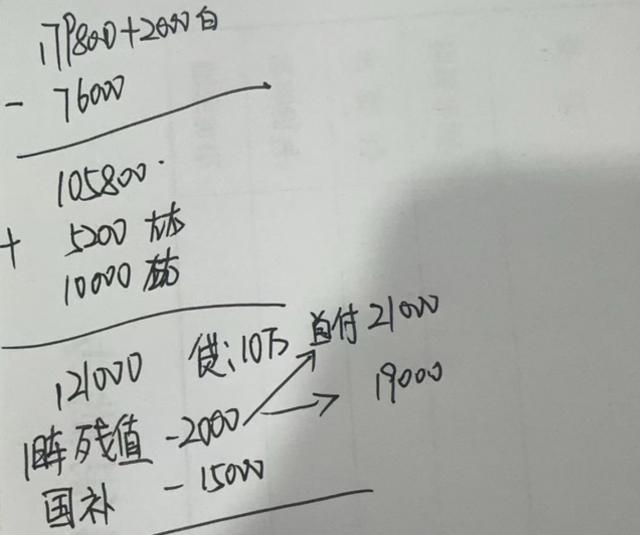 179800+2000白
- 76000
105800
+ 5200
10000
121000 贷:10万 首付21000
旧车残值 -2000 19000
国补 -15000